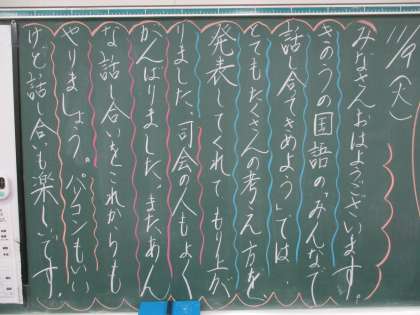 11/9(火)
みなさんおはようございます。
きのうの国語の「みんなで
話し合ってきめよう」では、
とてもたくさんの考え方を
発表してくれて もり上が
りました。司会の人もよく
がんばりました。またあん
な話し合いをこれからも
やりましょう。パソコンもいい
けど、話し合いも楽しいです。